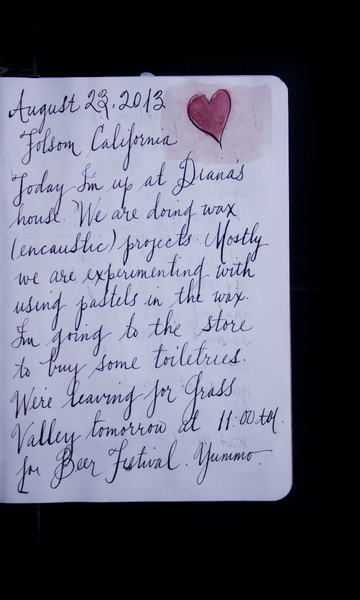 August 23, 2013
Folsom California
Today I'm up at Diana's
house. We are doing wax
(encaustic) projects. Mostly
we are experimenting with
using pastels in the wax.
I'm going to the store
to buy some toiletries.
We're leaving for Grass
Valley tomorrow at 11:00 AM.
for Beer Festival. Yummo.